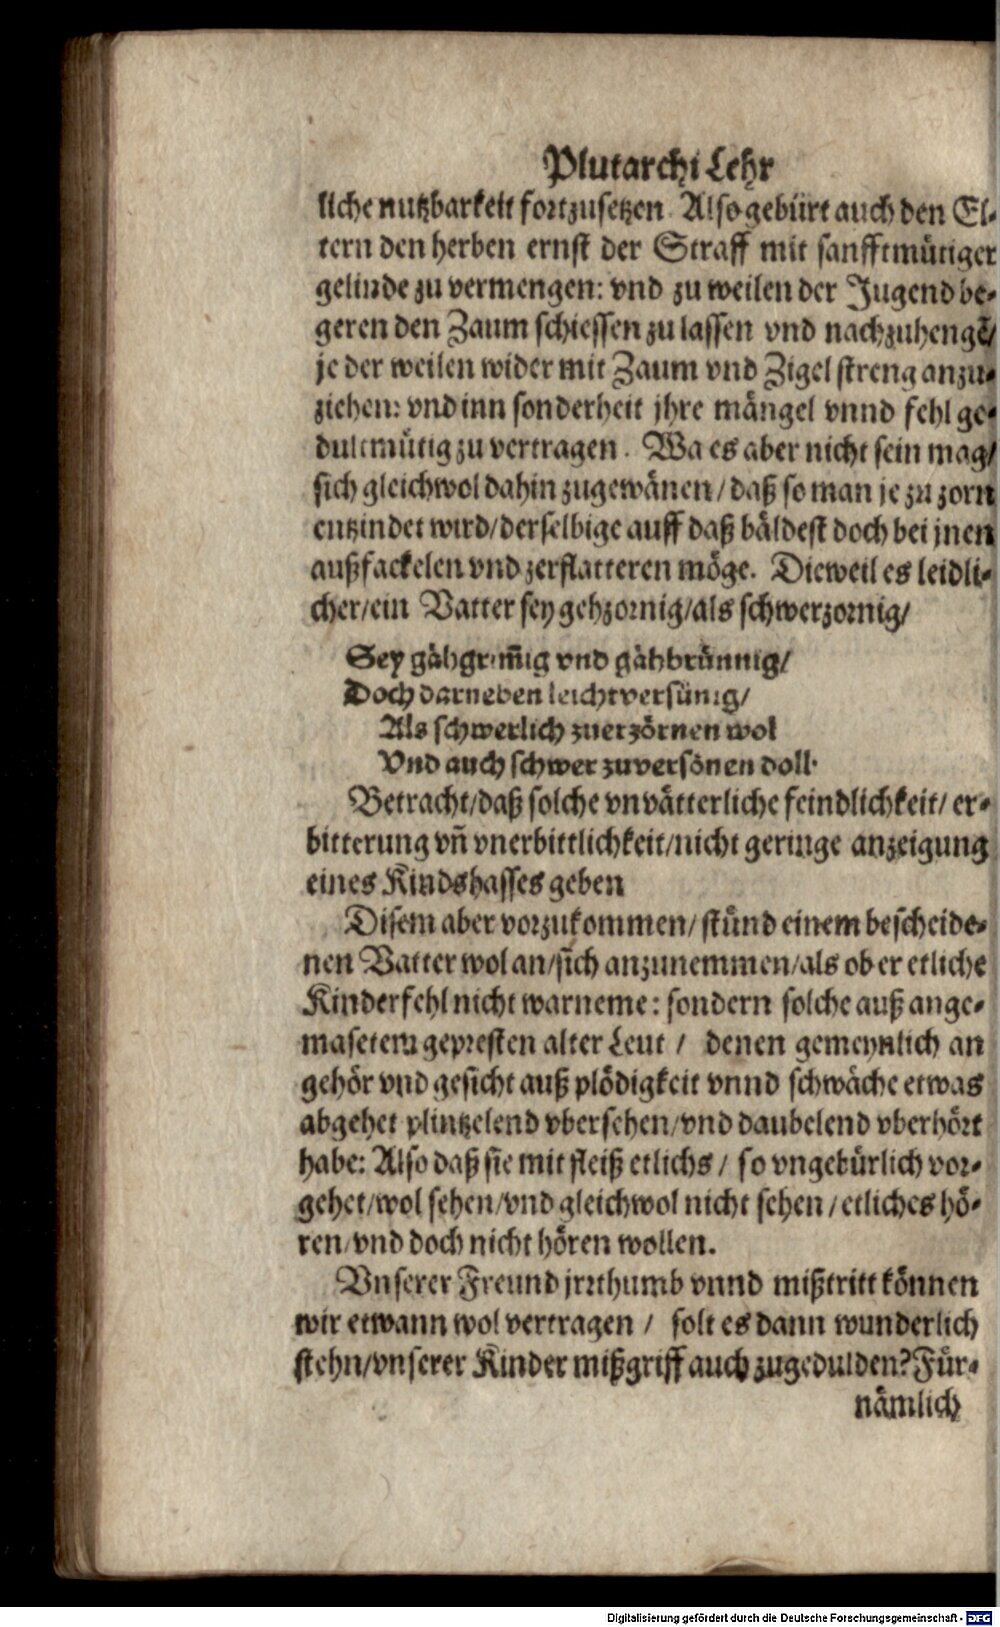 Plutarchi Lehr
liche nutzbarkeit fortzusetzen. Also gebürt auch den El-
tern den herben ernst der Straff mit sanfftmütiger
gelinde zu vermengen: vnd zu weilen der Jugend be-
geren den Zaum schiessen zu lassen vnd nachzuhengẽ/
je der weilen wider mit Zaum vnd Zigel streng anzu-
ziehen: vnd inn sonderheit jhre mängel vnnd fehl ge-
dultmütig zu vertragen. Wa es aber nicht sein mag/
sich gleichwol dahin zugewänen/daß so man je zu zorn
entzindet wird/derselbige auff daß bäldest doch bei jnen
außfackelen vnd zerflatteren möge. Dieweil es leidli-
cher/ein Vatter sey gehzornig/als schwerzornig/
Sey gähgrim̃ig vnd gähbrünnig/
Doch darneben leichtversünig/
Als schwerlich zuerzörnen wol
Vnd auch schwer zuversönen doll.
Betracht/daß solche vnvätterliche feindlichkeit/ er-
bitterung vñ vnerbittlichkeit/nicht geringe anzeigung
eines Kindshasses geben
Disem aber vorzukommen/stünd einem bescheide-
nen Vatter wol an/sich anzunemmen/als ob er etliche
Kinderfehl nicht warneme: sondern solche auß ange-
masetem gepresten alter Leut / denen gemeynlich an
gehör vnd gesicht auß plödigkeit vnnd schwäche etwas
abgehet plintzelend vbersehen/vnd daubelend vberhört
habe: Also daß sie mit fleiß etlichs / so vngebürlich vor-
gehet/wol sehen/vnd gleichwol nicht sehen/etliches hö-
ren/vnd doch nicht hören wollen.
Vnserer Freund jrrthumb vnnd mißtritt können
wir etwann wol vertragen / solt es dann wunderlich
stehn/vnserer Kinder mißgriff auch zugedulden? Für-
nämlich
Digitalisierung gefördert durch die Deutsche Forschungsgemeinschaft - DFG